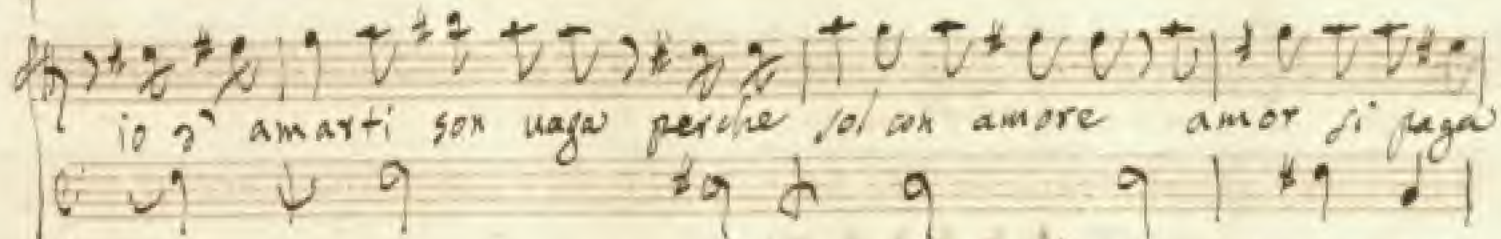 io d' amarti son uaga perche sol con amore amor si paga